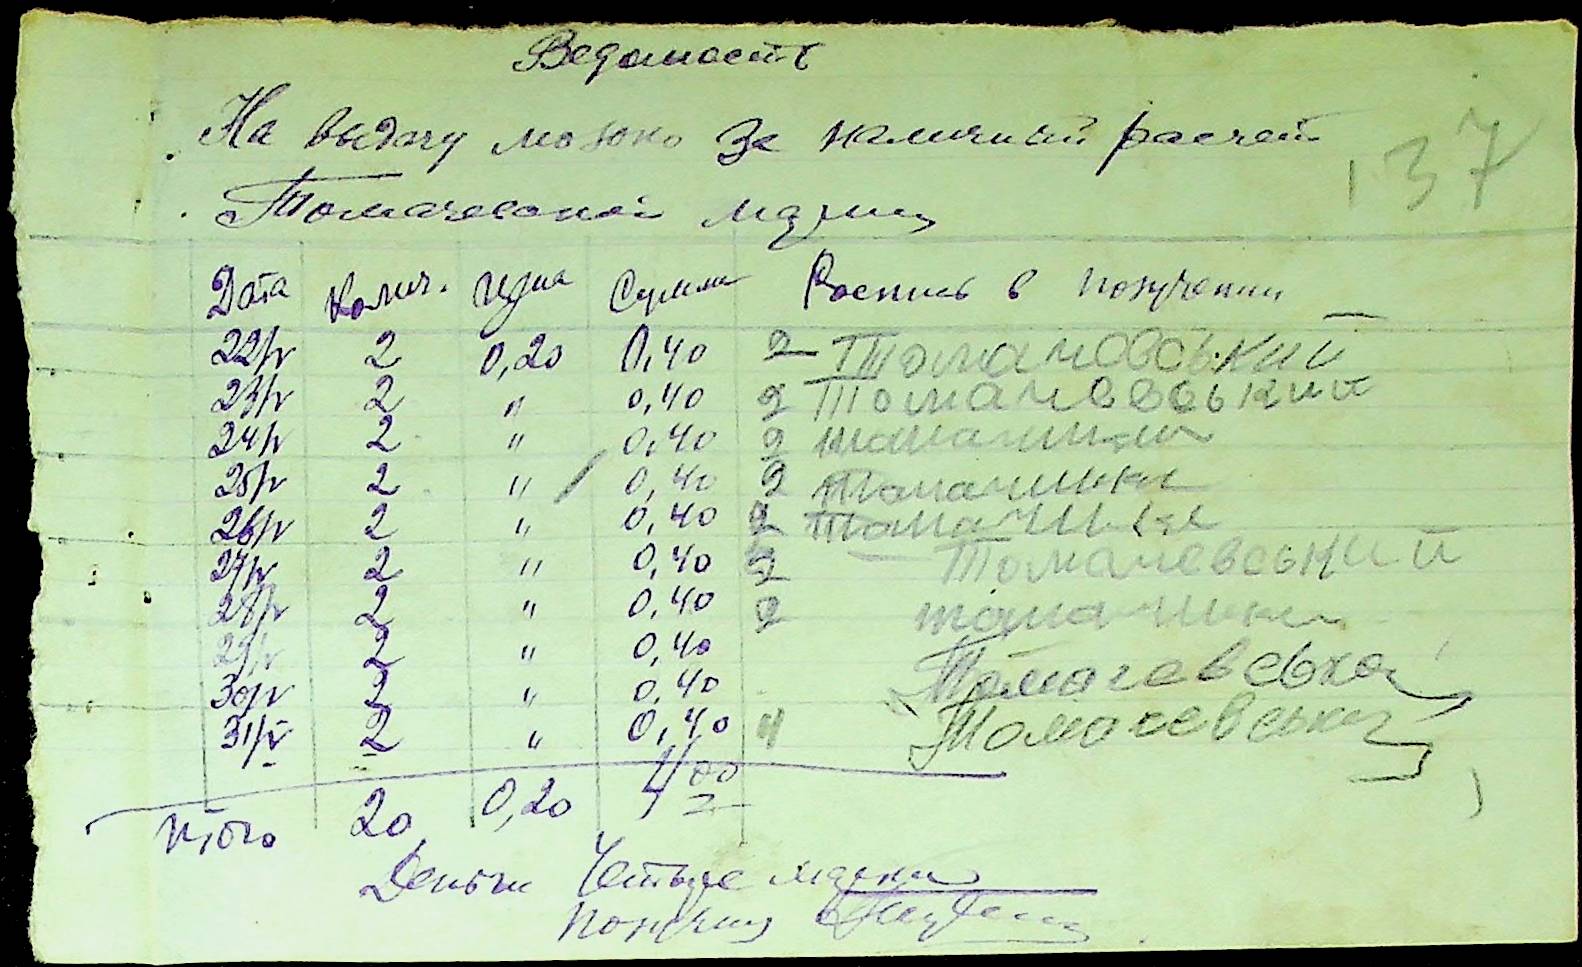 Ведомость
На выдачу молоко за наличный расчет
137
Томачевской Марии
Дата Колич. Цена Сумма Роспись в получении
22/IV 2 0,20 0,40 2 Томачовський
23/IV 2 " 0,40 2 Томачевський
24/IV 2 " 0,40 2
25/IV 2 " 0,40 2
26/IV 2 " 0,40 2
27/IV 2 " 0,40 2 Томачевський
28/IV 2 " 0,40 2
29/IV 2 " 0,40
30/IV 2 " 0,40 Томачевська
31/IV 2 " 0,40 4 Томачевськ
Итого 20 0,20 4 00
Деньги Четыре марки
получил